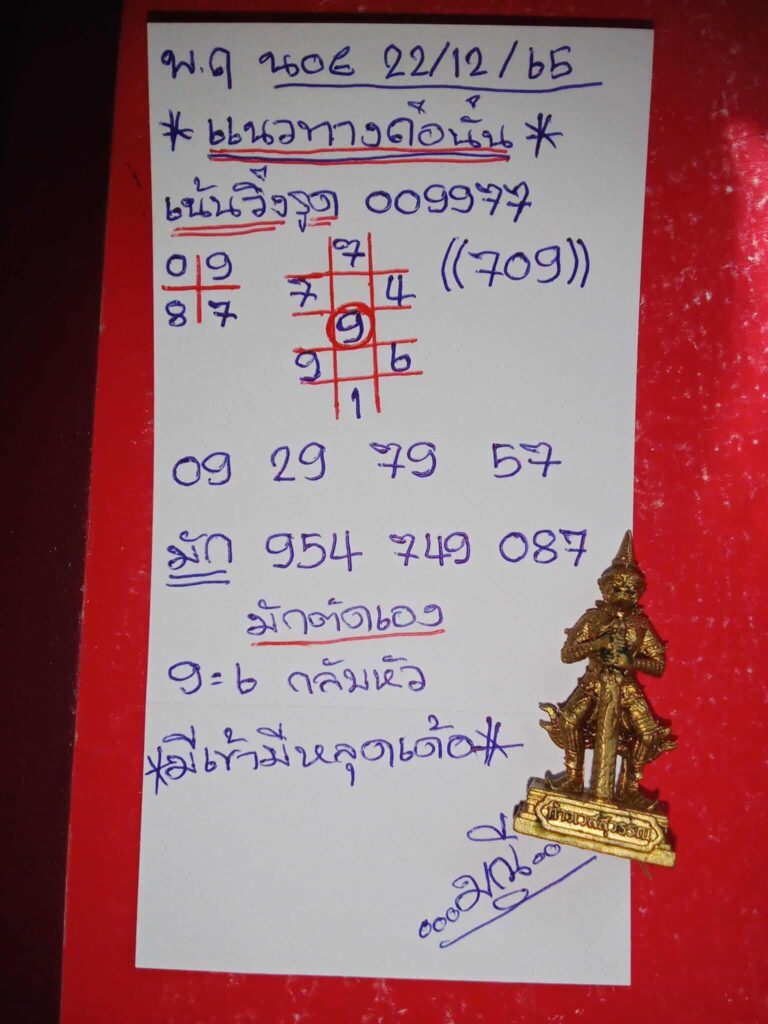 พ.ฤ นอย 22/12/65
*แนวทางคือนั่น*
เน้นวิ่งรูด 009977
0 9
8 7
7
7 4
9
9 6
1
((709))
09 29 79 57
มัก 954 749 087
มักตัดเอง
9=6 กลับหัว
*มีเข้ามีหลุดเด้อ*
ท้าวเวสสุวรรณ
...มณี..